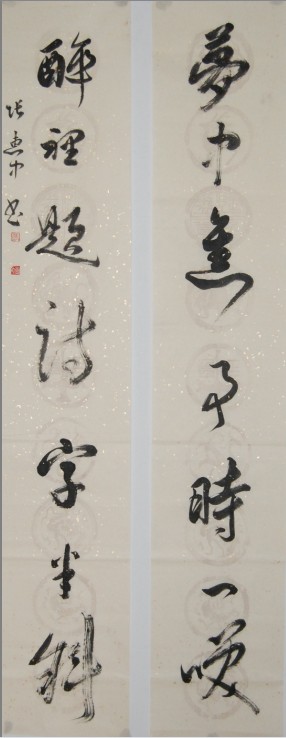 夢中舊事時一咲
酔裡題詩字半斜
張惠中書